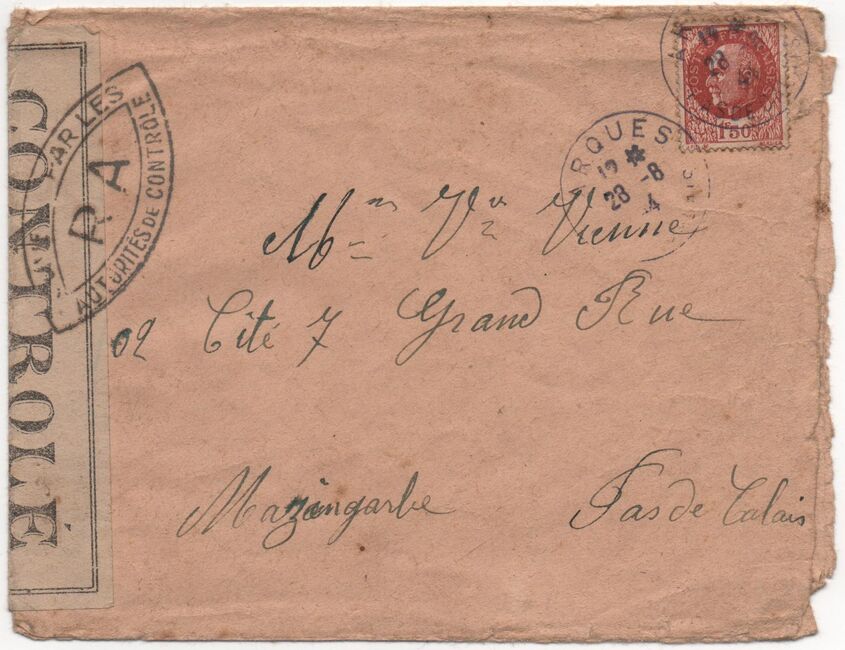 CONTROLE
PAR LES
AUTORITÉS DE CONTROLE
R A
POSTES FRANÇAISES
1F50
RQUES
12 *
28 -8
4
Mme Vve Vienne
02 Cité 7 Grand Rue
Mazingarbe Pas de Calais